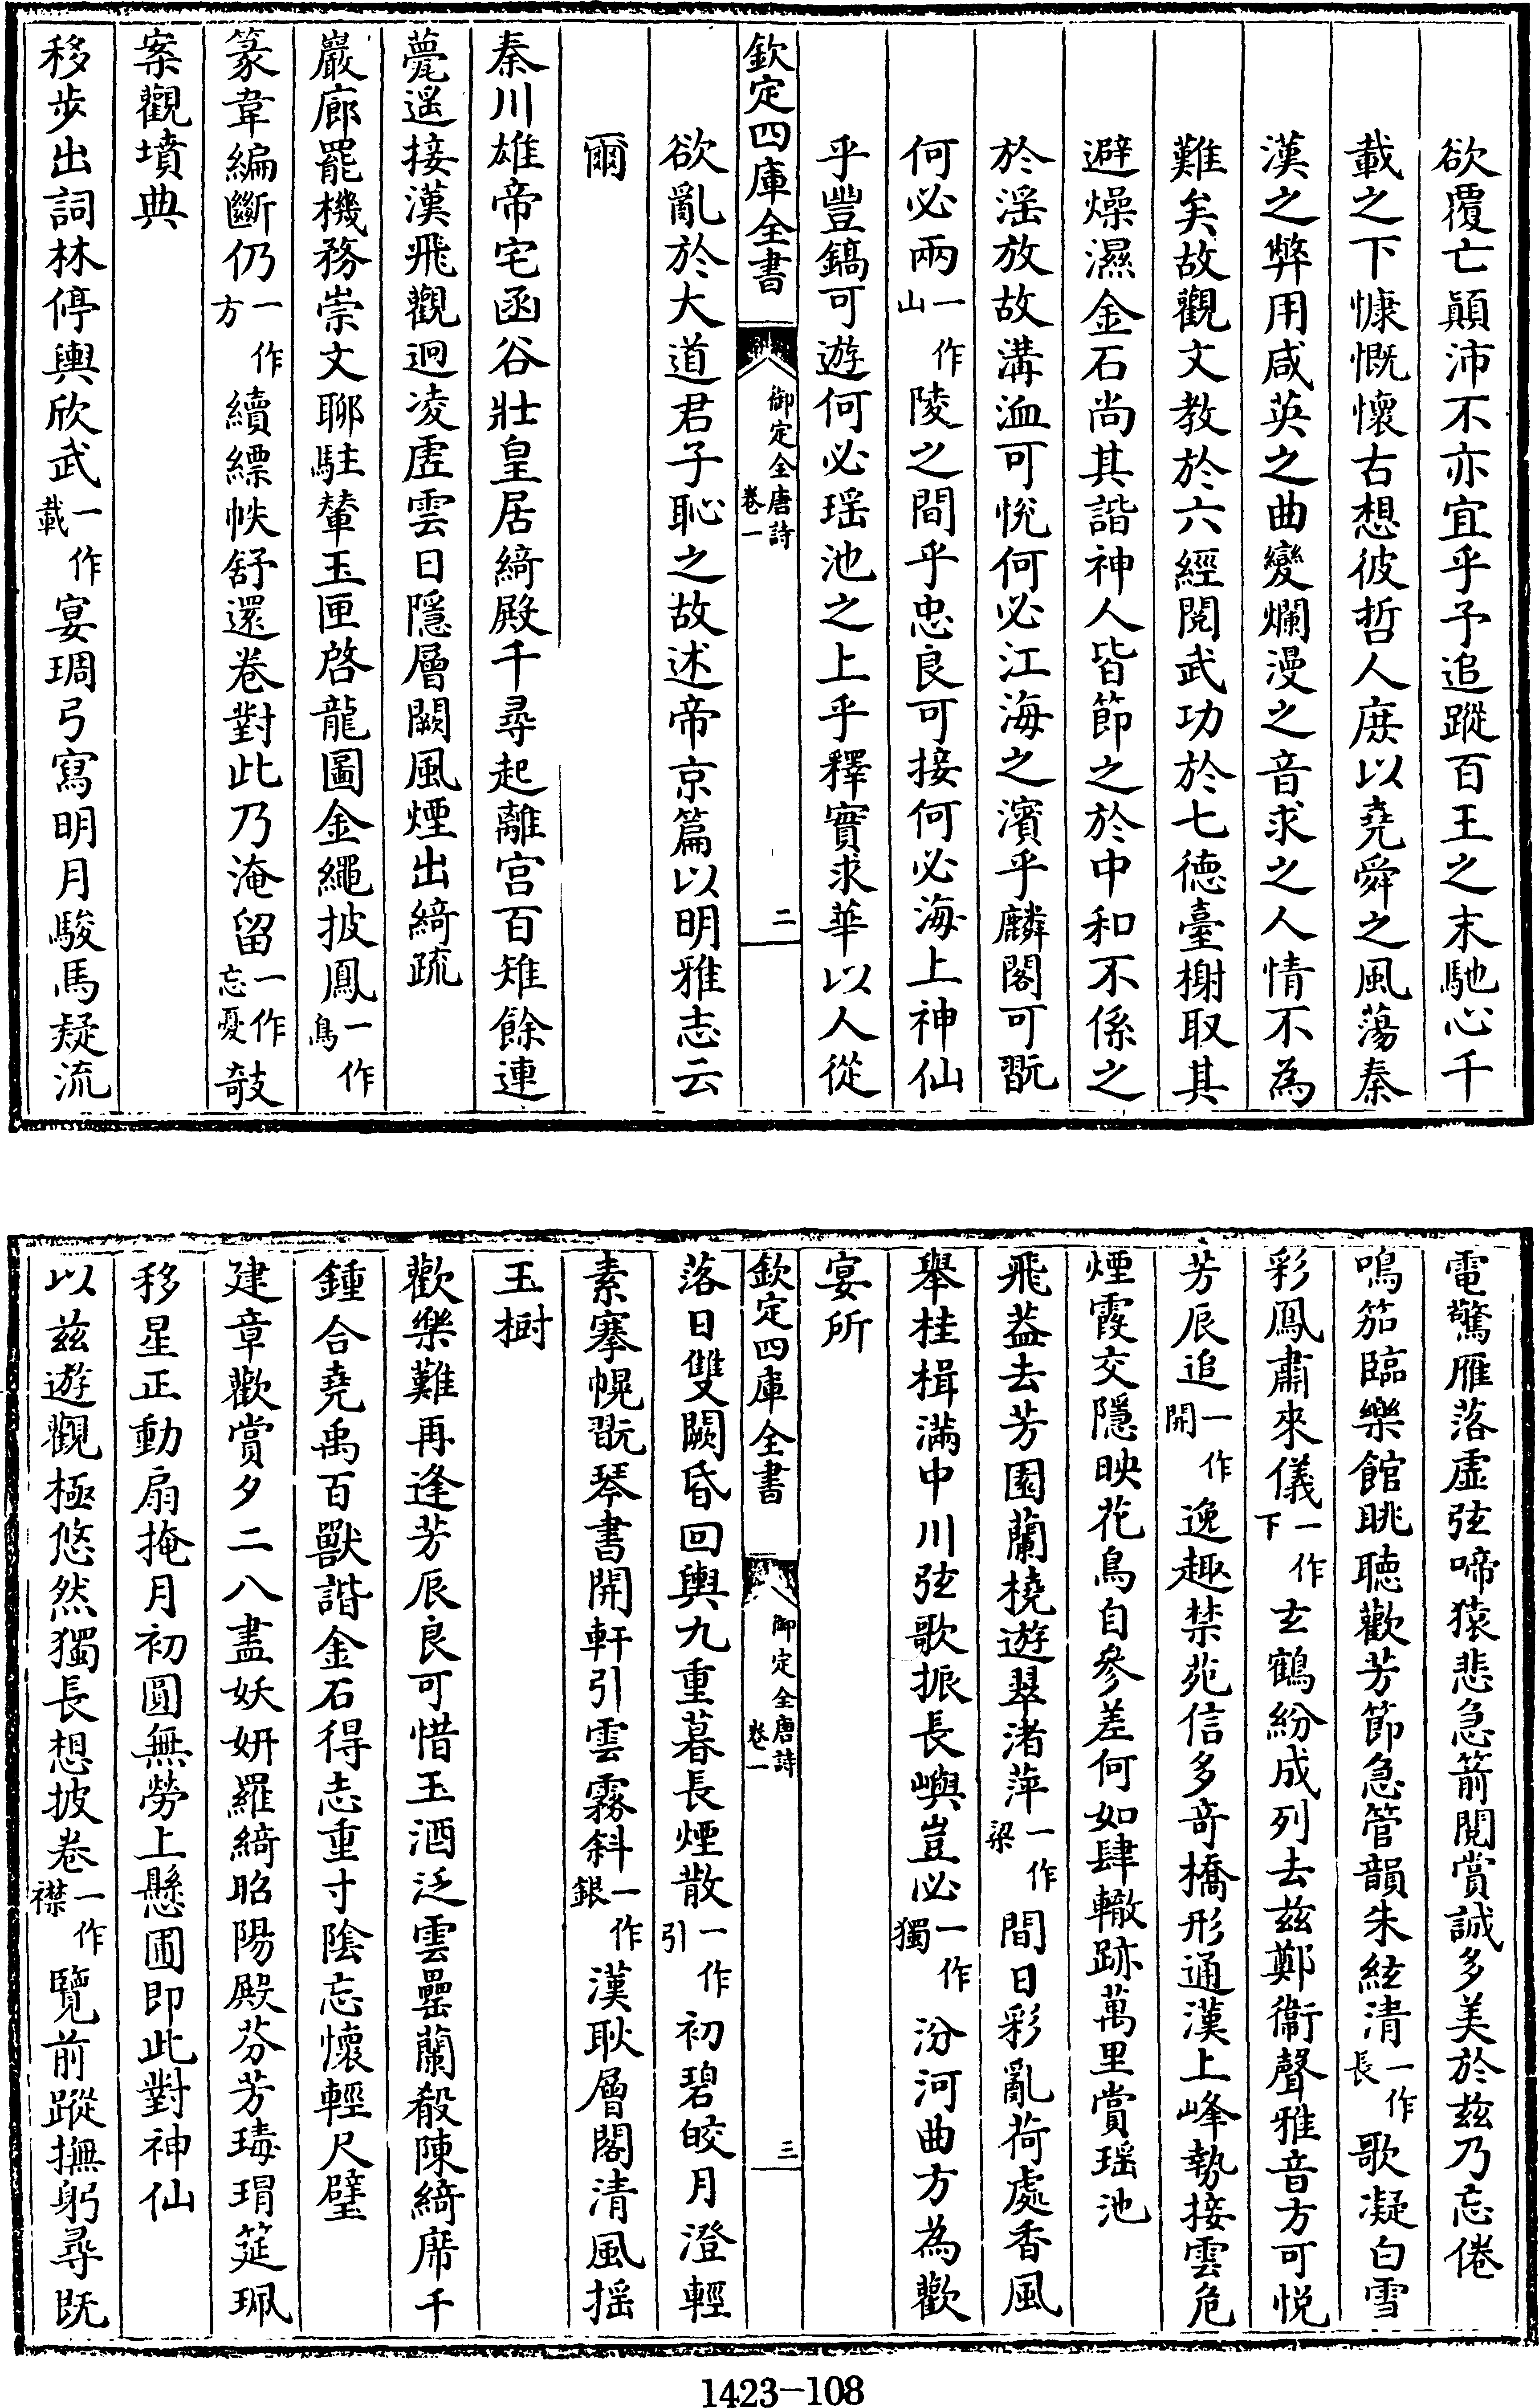 欲覆亡顛沛不亦宜乎予追蹤百王之末馳心千
載之下慷慨懷古想彼哲人庶以堯舜之風蕩秦
漢之弊用咸英之曲變爛漫之音求之人情不為
難矣故觀文教於六經閱武功於七德臺榭取其
避燥濕金石尚其諧神人皆節之於中和不係之
於淫放故溝洫可悅何必江海之濱乎麟閣可翫
何必兩一作山陵之間乎忠良可接何必海上神仙
乎豐鎬可遊何必瑶池之上乎釋實求華以人從
欽定四庫全書 御定全唐詩卷一 二
欲亂於大道君子恥之故述帝京篇以明雅志云
爾
秦川雄帝宅函谷壯皇居綺殿千尋起離宫百雉餘連
薨遥接漢飛觀迥凌虛雲日隱層闕風煙出綺疏
巖廊罷機務崇文聊駐輦玉匣啓龍圖金繩披鳳一作鳥
篆韋編斷仍一作方續縹帙舒還卷對此乃淹留一作忘憂敧
案觀墳典
移步出詞林停輿欣武一作載宴琱弓寫明月駿馬疑流
電驚雁落虛弦啼猿悲急箭閱賞誠多美於兹乃忘倦
鳴笳臨樂館眺聽歡芳節急管韻朱絃清一作長歌凝白雪
彩鳳肅來儀一作下玄鶴紛成列去兹鄭衞聲雅音方可悦
芳辰追一作開逸趣禁苑信多奇橋形通漢上峰勢接雲危
煙霞交隱映花鳥自參差何如肆轍跡萬里賞瑶池
飛葢去芳園蘭橈遊翠渚萍一作梁間日彩亂荷處香風
舉桂楫滿中川弦歌振長嶼豈必一作獨汾河曲方為歡
宴所
欽定四庫全書 御定全唐詩卷一 三
落日雙闕昏回輿九重暮長煙散一作引初碧皎月澄輕
素搴幌翫琴書開軒引雲霧斜一作銀漢耿層閣清風揺
玉樹
歡樂難再逢芳辰良可惜玉酒泛雲罍蘭殽陳綺席千
鍾合堯禹百獸諧金石得志重寸陰忘懷輕尺璧
建章歡賞夕二八盡妖妍羅綺昭陽殿芬芳瑇瑁筵珮
移星正動扇掩月初圓無勞上懸圃即此對神仙
以兹遊觀極悠然獨長想披卷一作襟覽前蹤撫躬尋既
1423—108